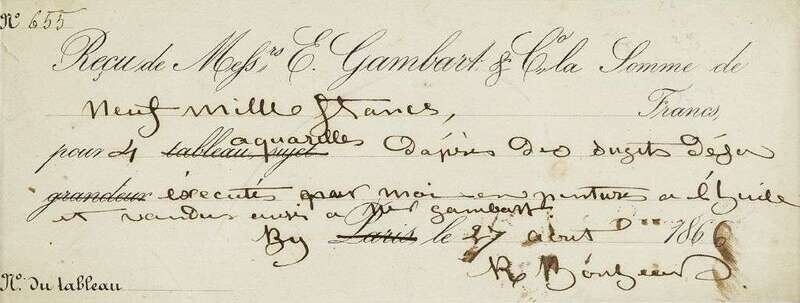 Nº 655
Reçu de Messrs E. Gambart & Co. la Somme de
Neuf mille francs, Francs,
pour 4 tableau, sujet aquarelles d'après des sujets déja
grandeur éxécutés par moi en peinture a l'huile
et vendus aussi a Mr gambart.
By Paris le 27 août 1866
R. Bonheur
Nº. du tableau